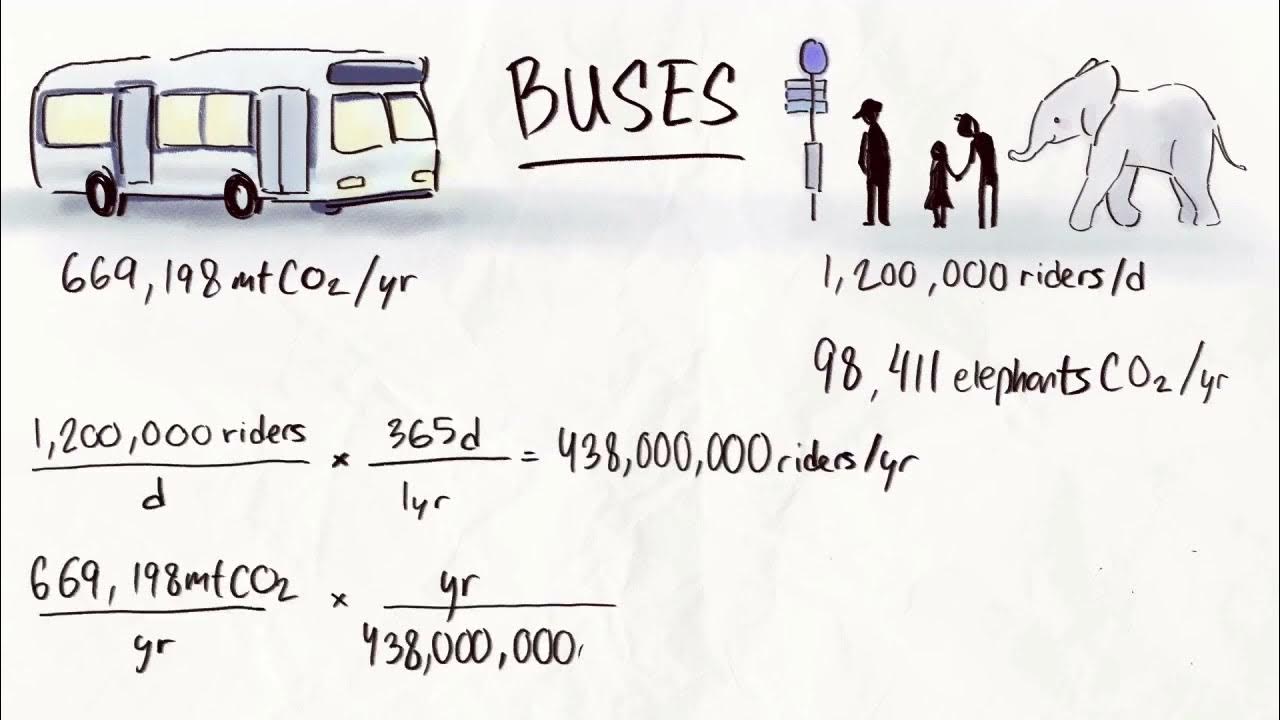 BUSES
669,198 mt CO₂/yr
1,200,000 riders/d
98,411 elephants CO₂/yr
1,200,000 riders / d × 365d / 1yr = 438,000,000 riders/yr
669,198 mt CO₂ / yr × yr / 438,000,000